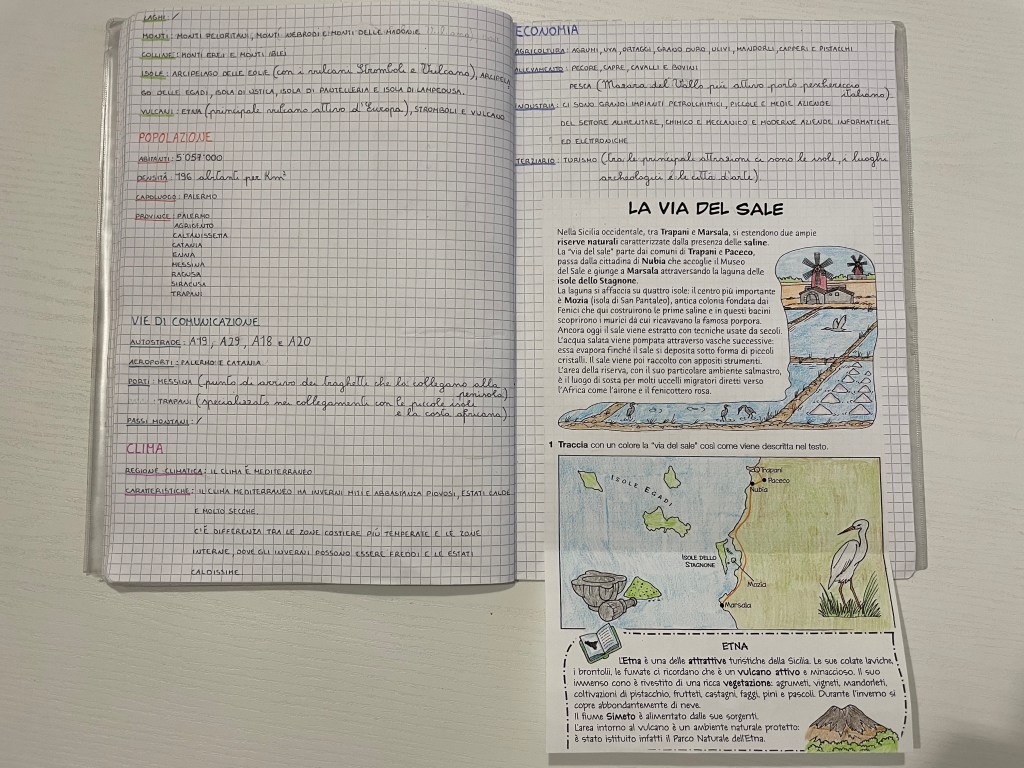 LAGHI: /
MONTI: MONTI PELORITANI, MONTI NEBRODI E MONTI DELLE MADONIE
COLLINE: MONTI EREI E MONTI IBLEI
ISOLE: ARCIPELAGO DELLE EOLIE (con i vulcani Stromboli e Vulcano), ARCIPELA
GO DELLE EGADI, ISOLA DI USTICA, ISOLA DI PANTELLERIA E ISOLA DI LAMPEDUSA.
VULCANI: ETNA (principale vulcano attivo d'Europa), STROMBOLI E VULCANO
POPOLAZIONE
ABITANTI: 5'057'000
DENSITÀ: 196 abitante per Km²
CAPOLUOGO: PALERMO
PROVINCE: PALERMO
AGRIGENTO
CALTANISSETTA
CATANIA
ENNA
MESSINA
RAGUSA
SIRACUSA
TRAPANI
VIE DI COMUNICAZIONE
AUTOSTRADE: A19, A29, A18 E A20
AEROPORTI: PALERMO E CATANIA
PORTI: MESSINA (punto di arrivo dei traghetti che la collegano alla
penisola)
TRAPANI (specializzato nei collegamenti con le piccole isole
e la costa africana)
PASSI MONTANI: /
CLIMA
REGIONE CLIMATICA: IL CLIMA È MEDITERRANEO
CARATTERISTICHE: IL CLIMA MEDITERRANEO HA INVERNI MITI E ABBASTANZA PIOVOSI, ESTATI CALDE
E MOLTO SECCHE.
C'È DIFFERENZA TRA LE ZONE COSTIERE PIÙ TEMPERATE E LE ZONE
INTERNE, DOVE GLI INVERNI POSSONO ESSERE FREDDI E LE ESTATI
CALDISSIME
ECONOMIA
AGRICOLTURA: AGRUMI, UVA, ORTAGGI, GRANO DURO, ULIVI, MANDORLI, CAPPERI E PISTACCHI.
ALLEVAMENTO: PECORE, CAPRE, CAVALLI E BOVINI
PESCA (Mazara del Vallo più attivo porto peschereccio
italiano).
INDUSTRIA: CI SONO GRANDI IMPIANTI PETROLCHIMICI, PICCOLE E MEDIE AZIENDE
DEL SETORE ALIMENTARE, CHIMICO E MECCANICO E MODERNE AZIENDE INFORMATICHE
ED ELETTRONICHE
TERZIARIO: TURISMO (tra le principali attrazioni ci sono le isole, i luoghi
archeologici e le città d'arte).
LA VIA DEL SALE
Nella Sicilia occidentale, tra Trapani e Marsala, si estendono due ampie
riserve naturali caratterizzate dalla presenza delle saline.
La "via del sale" parte dai comuni di Trapani e Paceco,
passa dalla cittadina di Nubia che accoglie il Museo
del Sale e giunge a Marsala attraversando la laguna delle
isole dello Stagnone.
La laguna si affaccia su quattro isole: il centro più importante
è Mozia (isola di San Pantaleo), antica colonia fondata dai
Fenici che qui costruirono le prime saline e in questi bacini
scoprirono i murici da cui ricavavano la famosa porpora.
Ancora oggi il sale viene estratto con tecniche usate da secoli.
L'acqua salata viene pompata attraverso vasche successive:
essa evapora finché il sale si deposita sotto forma di piccoli
cristalli. Il sale viene poi raccolto con appositi strumenti.
L'area della riserva, con il suo particolare ambiente salmastro,
è il luogo di sosta per molti uccelli migratori diretti verso
l'Africa come l'airone e il fenicottero rosa.
1 Traccia con un colore la "via del sale" così come viene descritta nel testo.
ISOLE EGADI
Trapani
Paceco
Nubia
ISOLE DELLO
STAGNONE
Mozia
Marsala
ETNA
L'Etna è una delle attrattive turistiche della Sicilia. Le sue colate laviche,
i brontolii, le fumate ci ricordano che è un vulcano attivo e minaccioso. Il suo
immenso cono è rivestito di una ricca vegetazione: agrumeti, vigneti, mandorleti,
coltivazioni di pistacchio, frutteti, castagni, faggi, pini e pascoli. Durante l'inverno si
copre abbondantemente di neve.
Il fiume Simeto è alimentato dalle sue sorgenti.
L'area intorno al vulcano è un ambiente naturale protetto:
è stato istituito infatti il Parco Naturale dell'Etna.